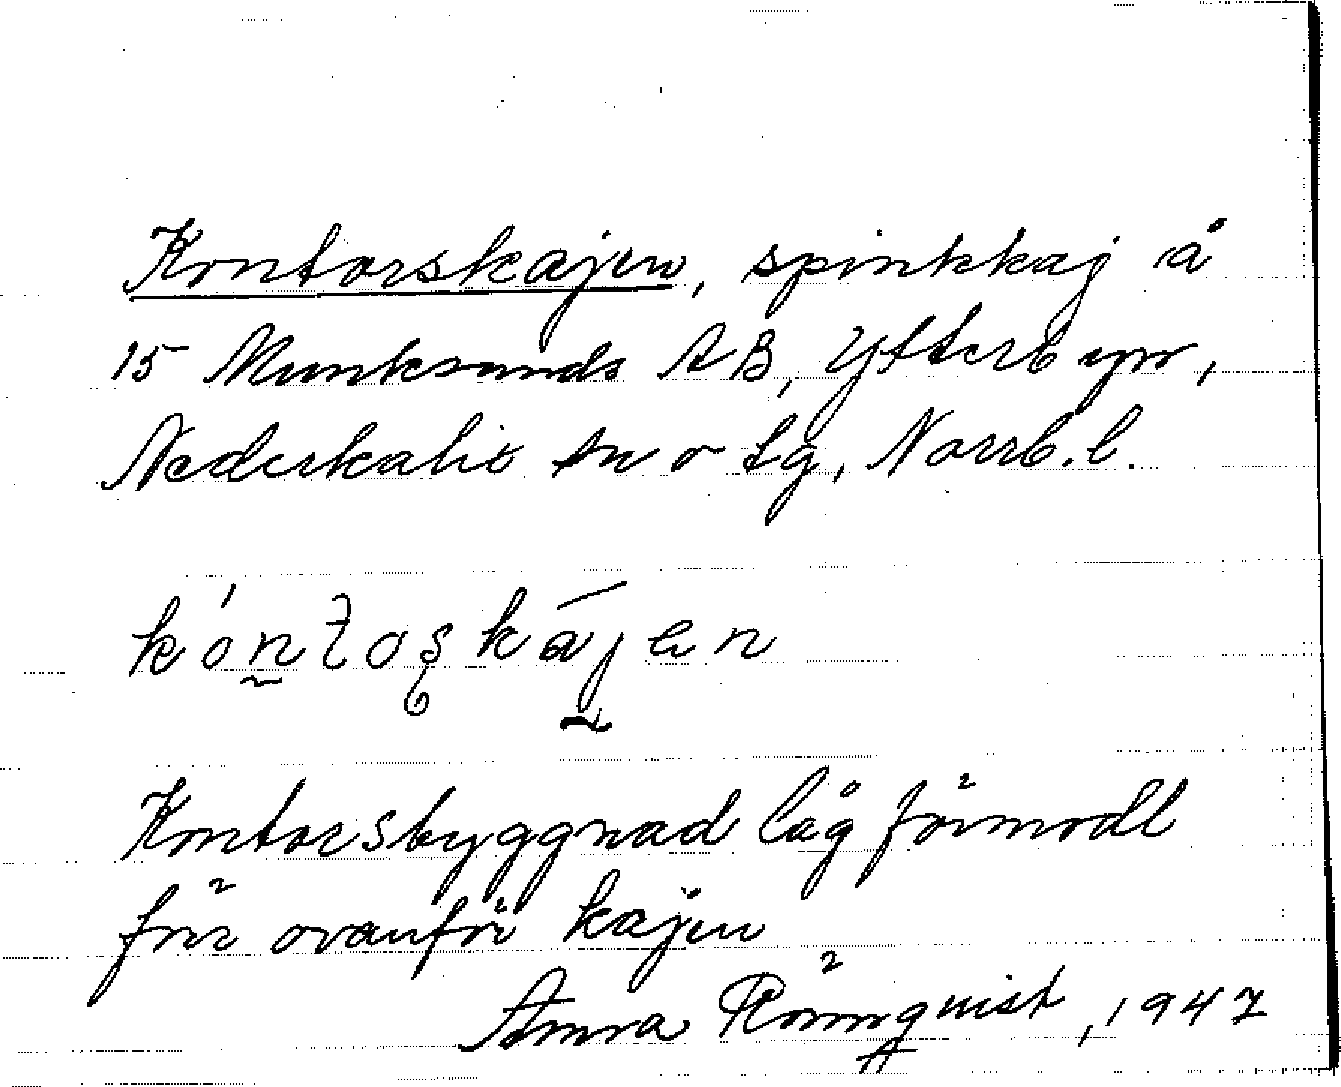 Kontorskajen, spinkkaj å
15 Munksunds AB, Ytterbyn,
Nederkalix sn o tg, Norrb. l.
kóntoskájen
Kontorsbyggnad låg förmodl
förr ovanför kajen
Anna Rönnquist, 1947